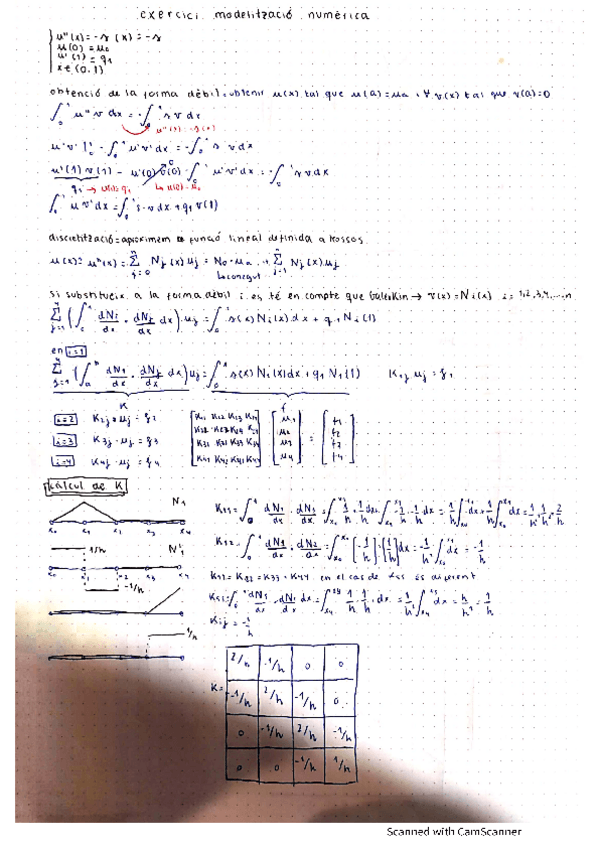 exercici modelització numèrica
u''(x) = -s(x) = -s
u(0) = u₀
u'(1) = q₁
x ∈ (0,1)
obtenció de la forma dèbil: obtenir u(x) tal que u(a)=ua, ∀ v(x) tal que v(a)=0
∫₀¹ u'' v dx = -∫₀¹ s v dx
u''(x) = -s(x)
u' v |₀¹ - ∫₀¹ u' v' dx = -∫₀¹ s v dx
u'(1) v(1) - u'(0) v(0) - ∫₀¹ u' v' dx = -∫₀¹ s v dx
0
q₁ → u'(1)= q₁ ↳ u(0)=u₀
∫₀¹ u' v' dx = ∫₀¹ s·v dx + q₁ v(1)
discretització = aproximem funció lineal definida a trossos
u(x) ≈ uʰ(x) = Σ j=0 Nj(x) uj = N₀·u₀ + Σ j=1 Nj(x) uj
↳ conegut
si substitueix a la forma dèbil i es té en compte que Galerkin → v(x) = Ni(x) i = 1,2,3,4,...,n
Σ j=1 (∫ dNi/dx · dNj/dx dx) uj = ∫₀¹ s(x) Ni(x) dx + q₁ Ni(1)
en i=1
Σ j=1 (∫ dN1/dx · dNj/dx dx) uj = ∫₀¹ s(x) N1(x) dx + q₁ N1(1) K1j uj = f1
K f
i=2 K2j · uj = f2
i=3 K3j · uj = f3
i=4 K4j · uj = f4
K11 K12 K13 K14 u1 f1
u2 = f2
K31 K32 K33 K34 u3 f3
K41 K42 K43 K44 u4 f4
Càlcul de K
N1
x0 x1 x2 x3 x4
K11 = ∫₀¹ dN1/dx · dN1/dx = ∫ 1/h · 1/h dx + ∫ -1/h · -1/h dx = 1/h² ∫ dx + 1/h² ∫ dx = 1/h + 1/h = 2/h
1/h N'1
x0 x1 x2 x3 x4
-1/h
K12 = ∫₀¹ dN1/dx · dN2/dx = ∫ [-1/h]·[1/h] dx = -1/h² ∫ dx = -1/h
K11 = K22 = K33 = K44 en el cas de és diferent
= 1/h
1/h
Kij = -1/h
K =
2/h -1/h 0 0
-1/h 2/h -1/h 0
0 -1/h 2/h -1/h
0 0 -1/h 1/h
Scanned with CamScanner